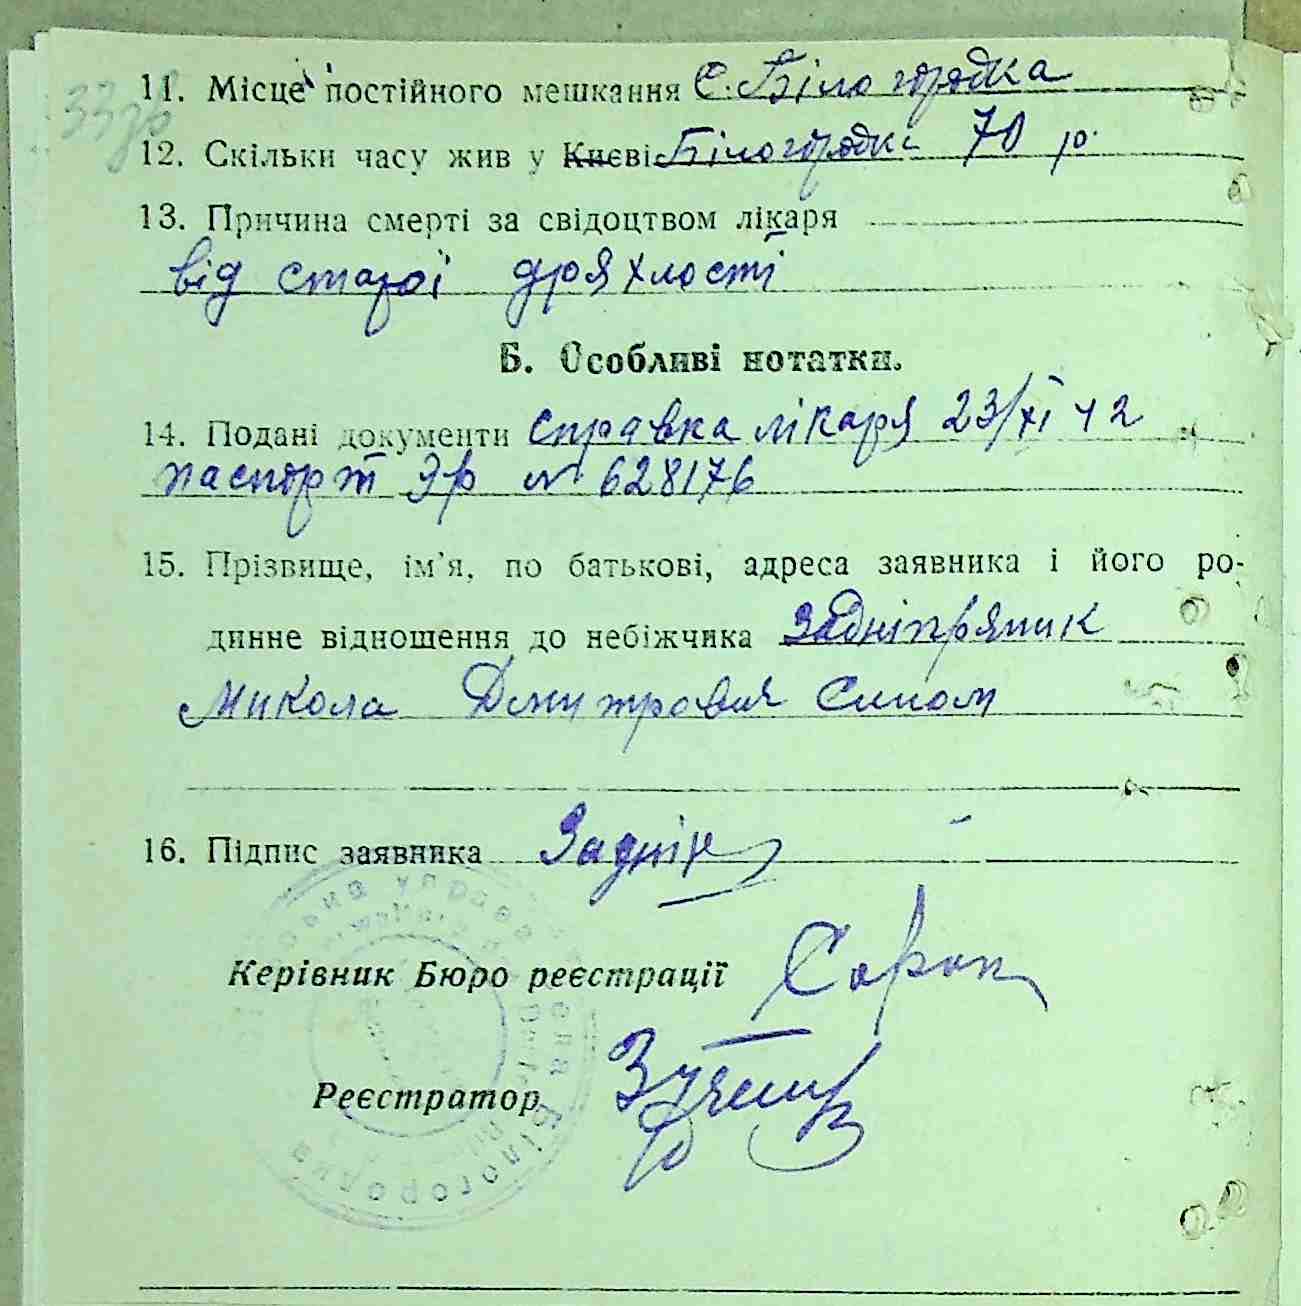 11. Місце постійного мешкання С. Білогородка
12. Скільки часу жив у Києві Білогородка 70 р.
13. Причина смерті за свідоцтвом лікаря
від старої дряхлості
Б. Особливі нотатки.
14. Подані документи справка лікаря 23/XI 42
паспорт ЭР № 628176
15. Прізвище, ім'я, по батькові, адреса заявника і його ро-
динне відношення до небіжчика Задніпряник
Микола Дмитрович Сином
16. Підпис заявника Задніп
Керівник Бюро реєстрації
Реєстратор
Білогородка